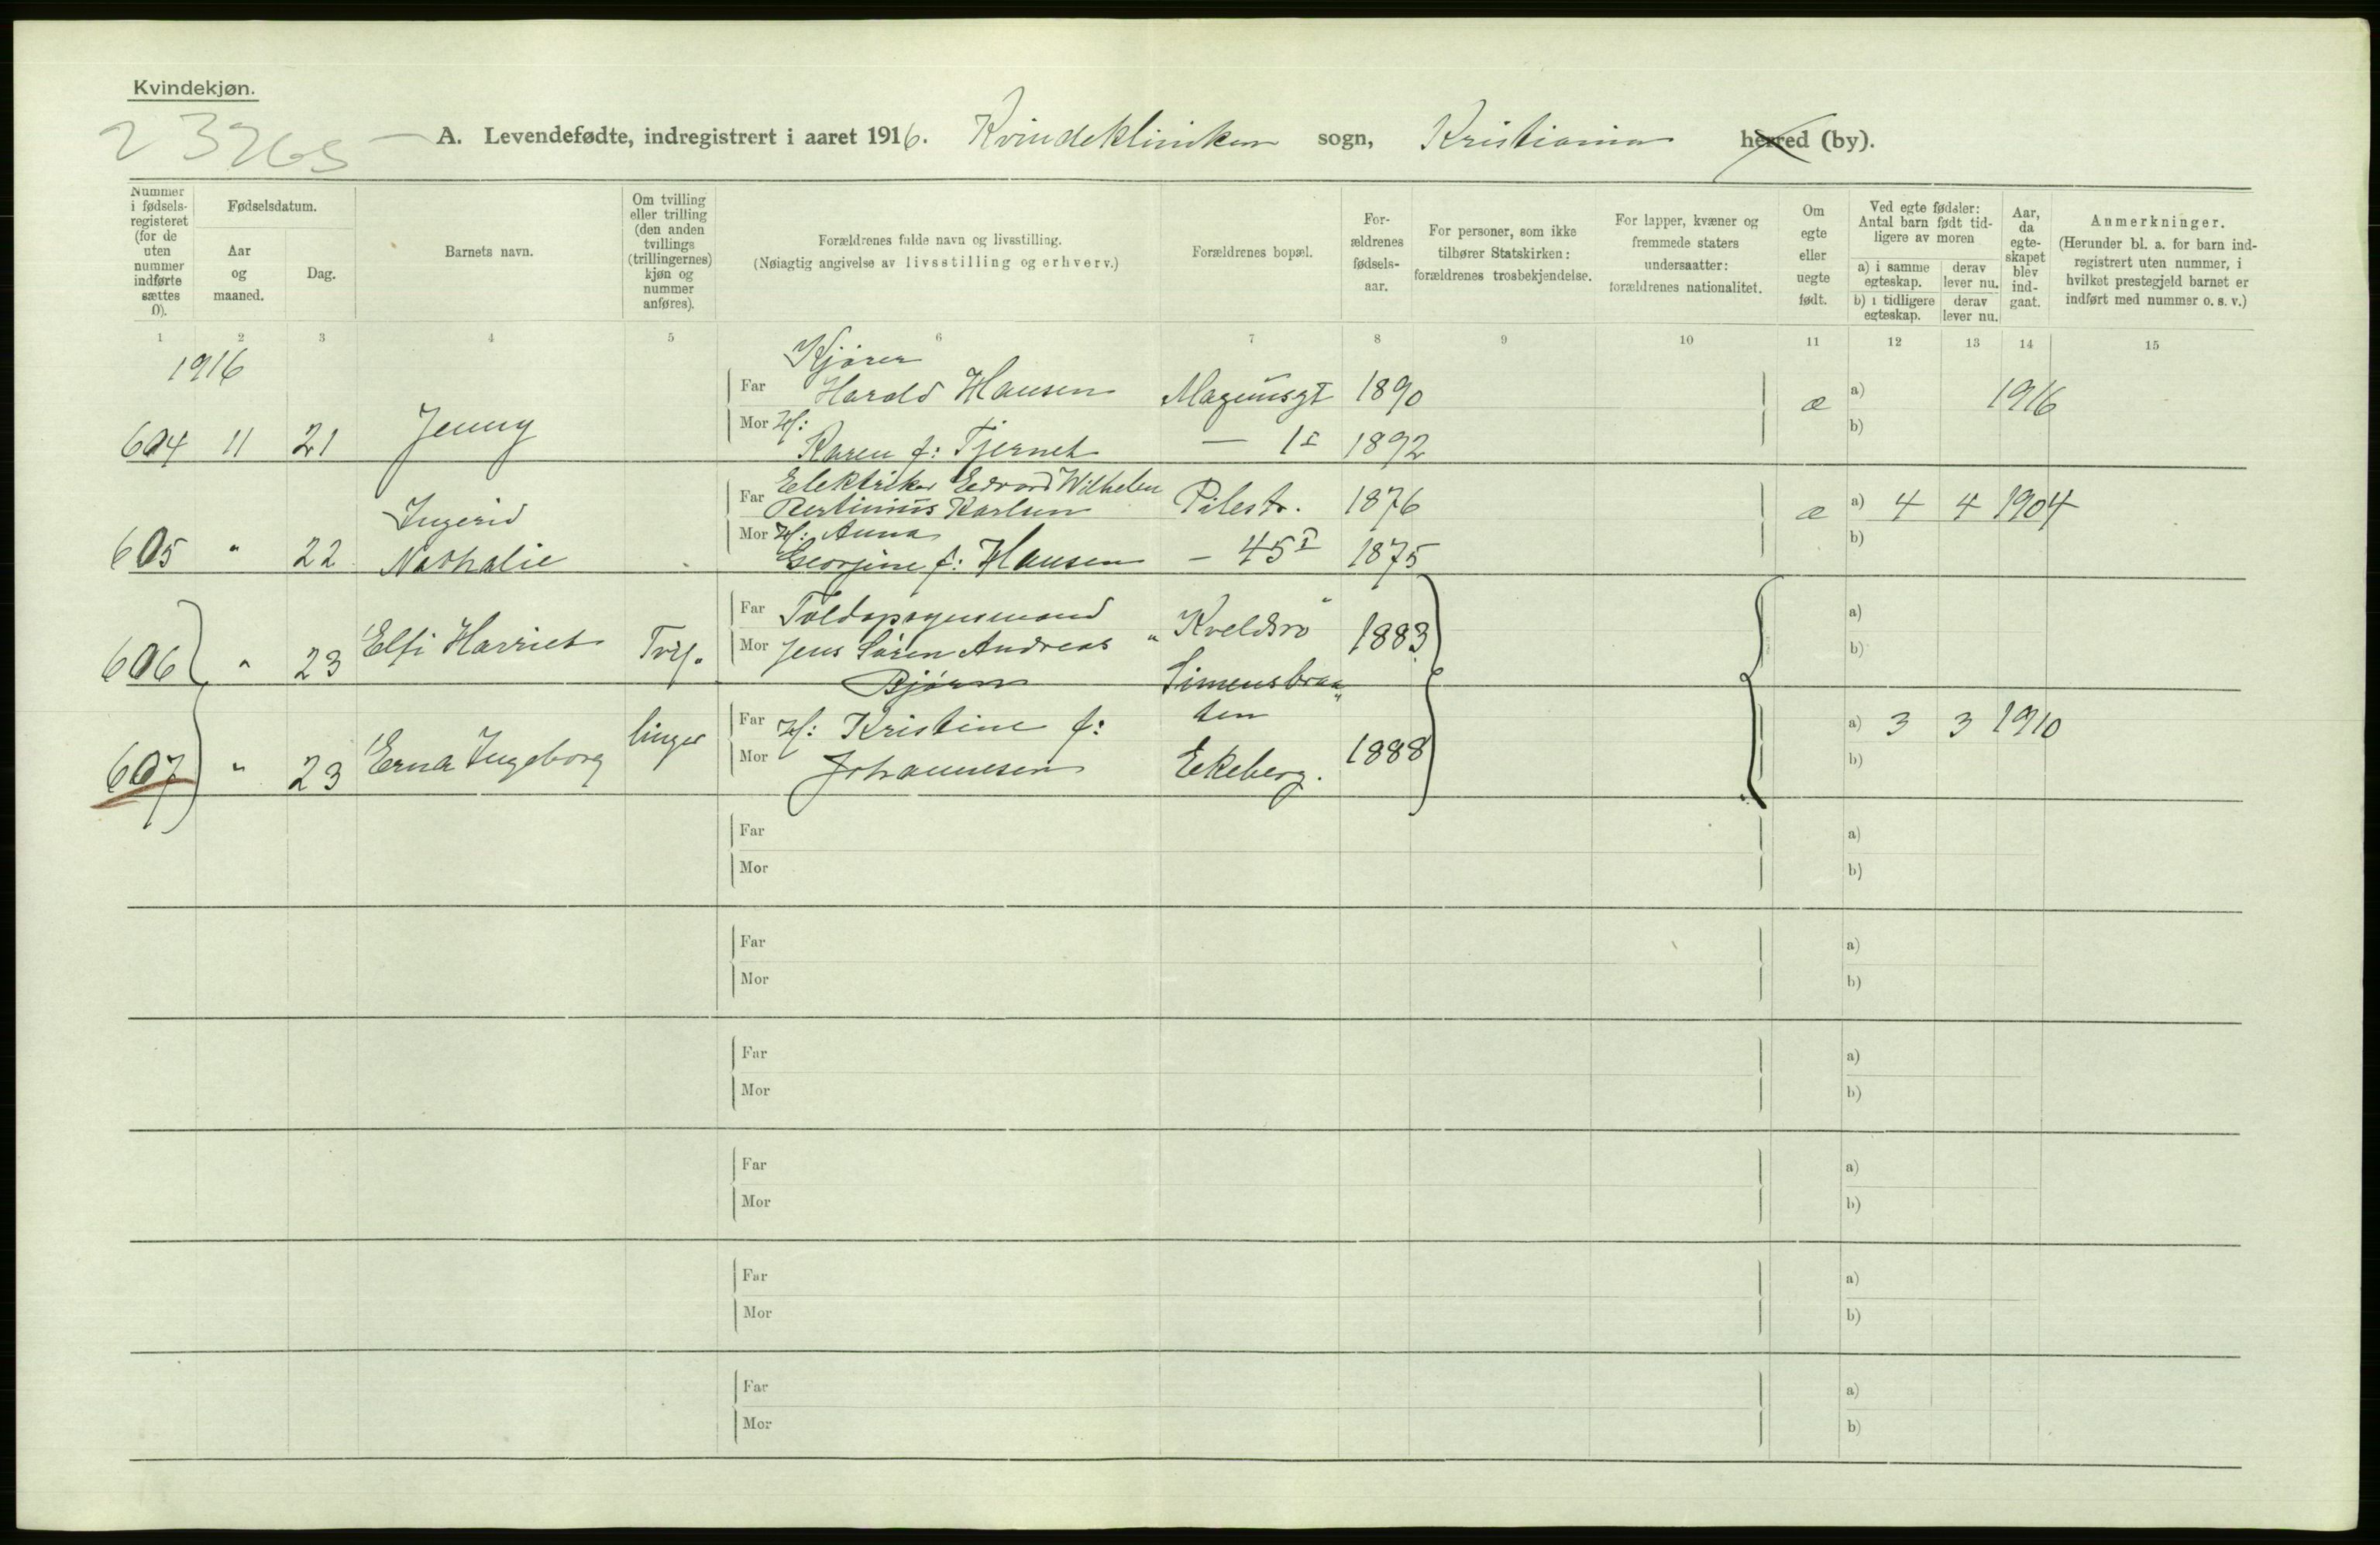 Kvindekjøn.
23265
A. Levendefødte, indregistrert i aaret 1916. Kvindekliniken sogn, Kristiania herred (by).
Nummer i fødsels-registeret (for de uten nummer indførte sættes 0).
Fødselsdatum.
Aar og maaned.
Dag.
Barnets navn.
Om tvilling eller trilling (den anden tvillings (trillingernes) kjøn og nummer anføres).
Forældrenes fulde navn og livsstilling.
(Nøiagtig angivelse av livsstilling og erhverv.)
Forældrenes bopæl.
For-ældrenes fødsels-aar.
For personer, som ikke tilhører Statskirken: forældrenes trosbekjendelse.
For lapper, kvæner og fremmede staters undersaatter: forældrenes nationalitet.
Om egte eller uegte født.
Ved egte fødsler: Antal barn født tid-ligere av moren
a) i samme egteskap.
derav lever nu.
b) i tidligere egteskap.
derav lever nu.
Aar, da egte-skapet blev ind-gaat.
Anmerkninger.
(Herunder bl. a. for barn ind-registrert uten nummer, i hvilket prestegjeld barnet er indført med nummer o. s. v.)
1 2 3 4 5 6 7 8 9 10 11 12 13 14 15
1916
Kjører
Far Harald Hansen Magnusgt 1890 æ a) 1916
604 11 21 Jenny Mor H: Karen f: Tjernet — 1 I 1892 b)
Far Elektriker Edvard Wilhelm
Bertinius Karlsen Pilestr. 1876 æ a) 4 4 1904
605 " 22 Ingerid Nathalie Mor H: Anna
Georgine f: Hansen — 45 I 1875 b)
Far Toldopsynsmand "Kveldsro" a)
606 " 23 Elfi Harriet Tvil- Mor Jens Søren Andreas 1883 b)
Bjørn Simensbraa-
Far H: Kristine f: ten a) 3 3 1910
607 " 23 Erna Ingeborg linger Mor Johannesen Ekeberg. 1888 b)
Far a)
Mor b)
Far a)
Mor b)
Far a)
Mor b)
Far a)
Mor b)
Far a)
Mor b)
Far a)
Mor b)